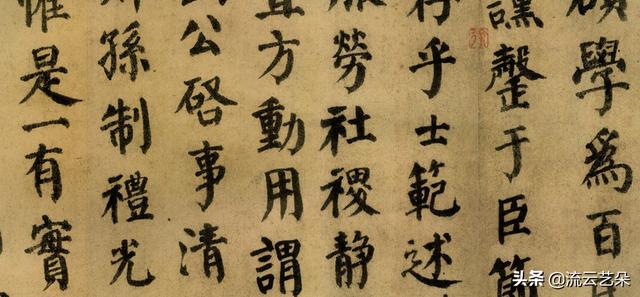 碩學爲百
讜罄于臣節
存乎士範述
服勞社稷静
直方動用謂
公啓事清
孫制禮光
惟是一有實
头条 @流云艺朵